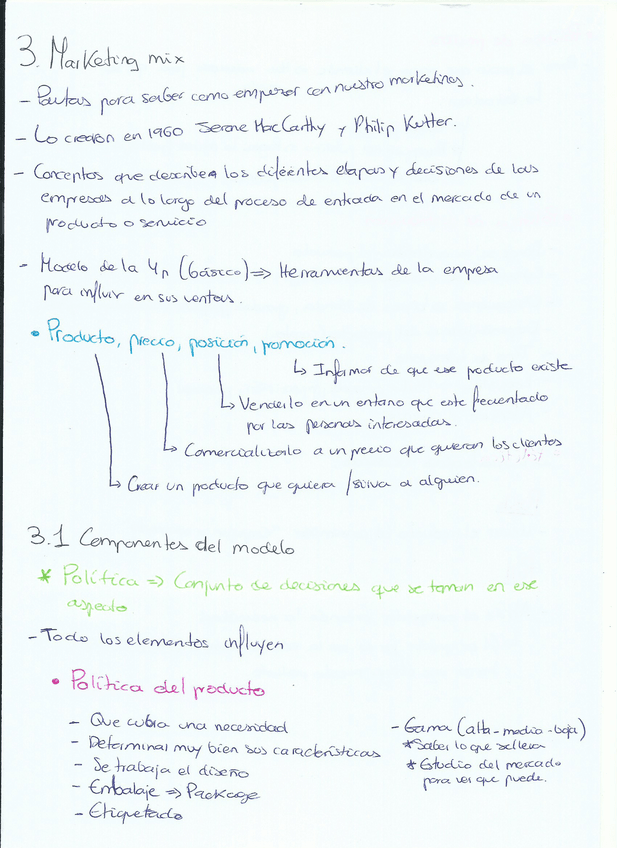 3. Marketing mix
- Pautas para saber como empezar con nuestro marketing.
- Lo crearon en 1960 Jerome MacCarthy y Philip Kutter.
- Conceptos que describen los diferentes etapas y decisiones de las
empresas a lo largo del proceso de entrada en el mercado de un
producto o servicio
- Modelo de la 4p (básico) => Herramientas de la empresa
para influir en sus ventas.
• Producto, precio, posición, promoción.
↳ Informar de que ese producto existe
↳ Venderlo en un entorno que este frecuentado
por las personas interesadas.
↳ Comercializarlo a un precio que quieran los clientes
↳ Crear un producto que quiera / sirva a alguien.
3.1 Componentes del modelo
* Política => Conjunto de decisiones que se toman en ese
aspecto
- Todo los elementos influyen
• Política del producto
- Que cubra una necesidad
- Determinar muy bien sus características
- Se trabaja el diseño
- Embalaje => Package
- Etiquetado
- Gama (alta - media - baja)
* Saber lo que se lleva
* Estudio del mercado
para ver que puede.